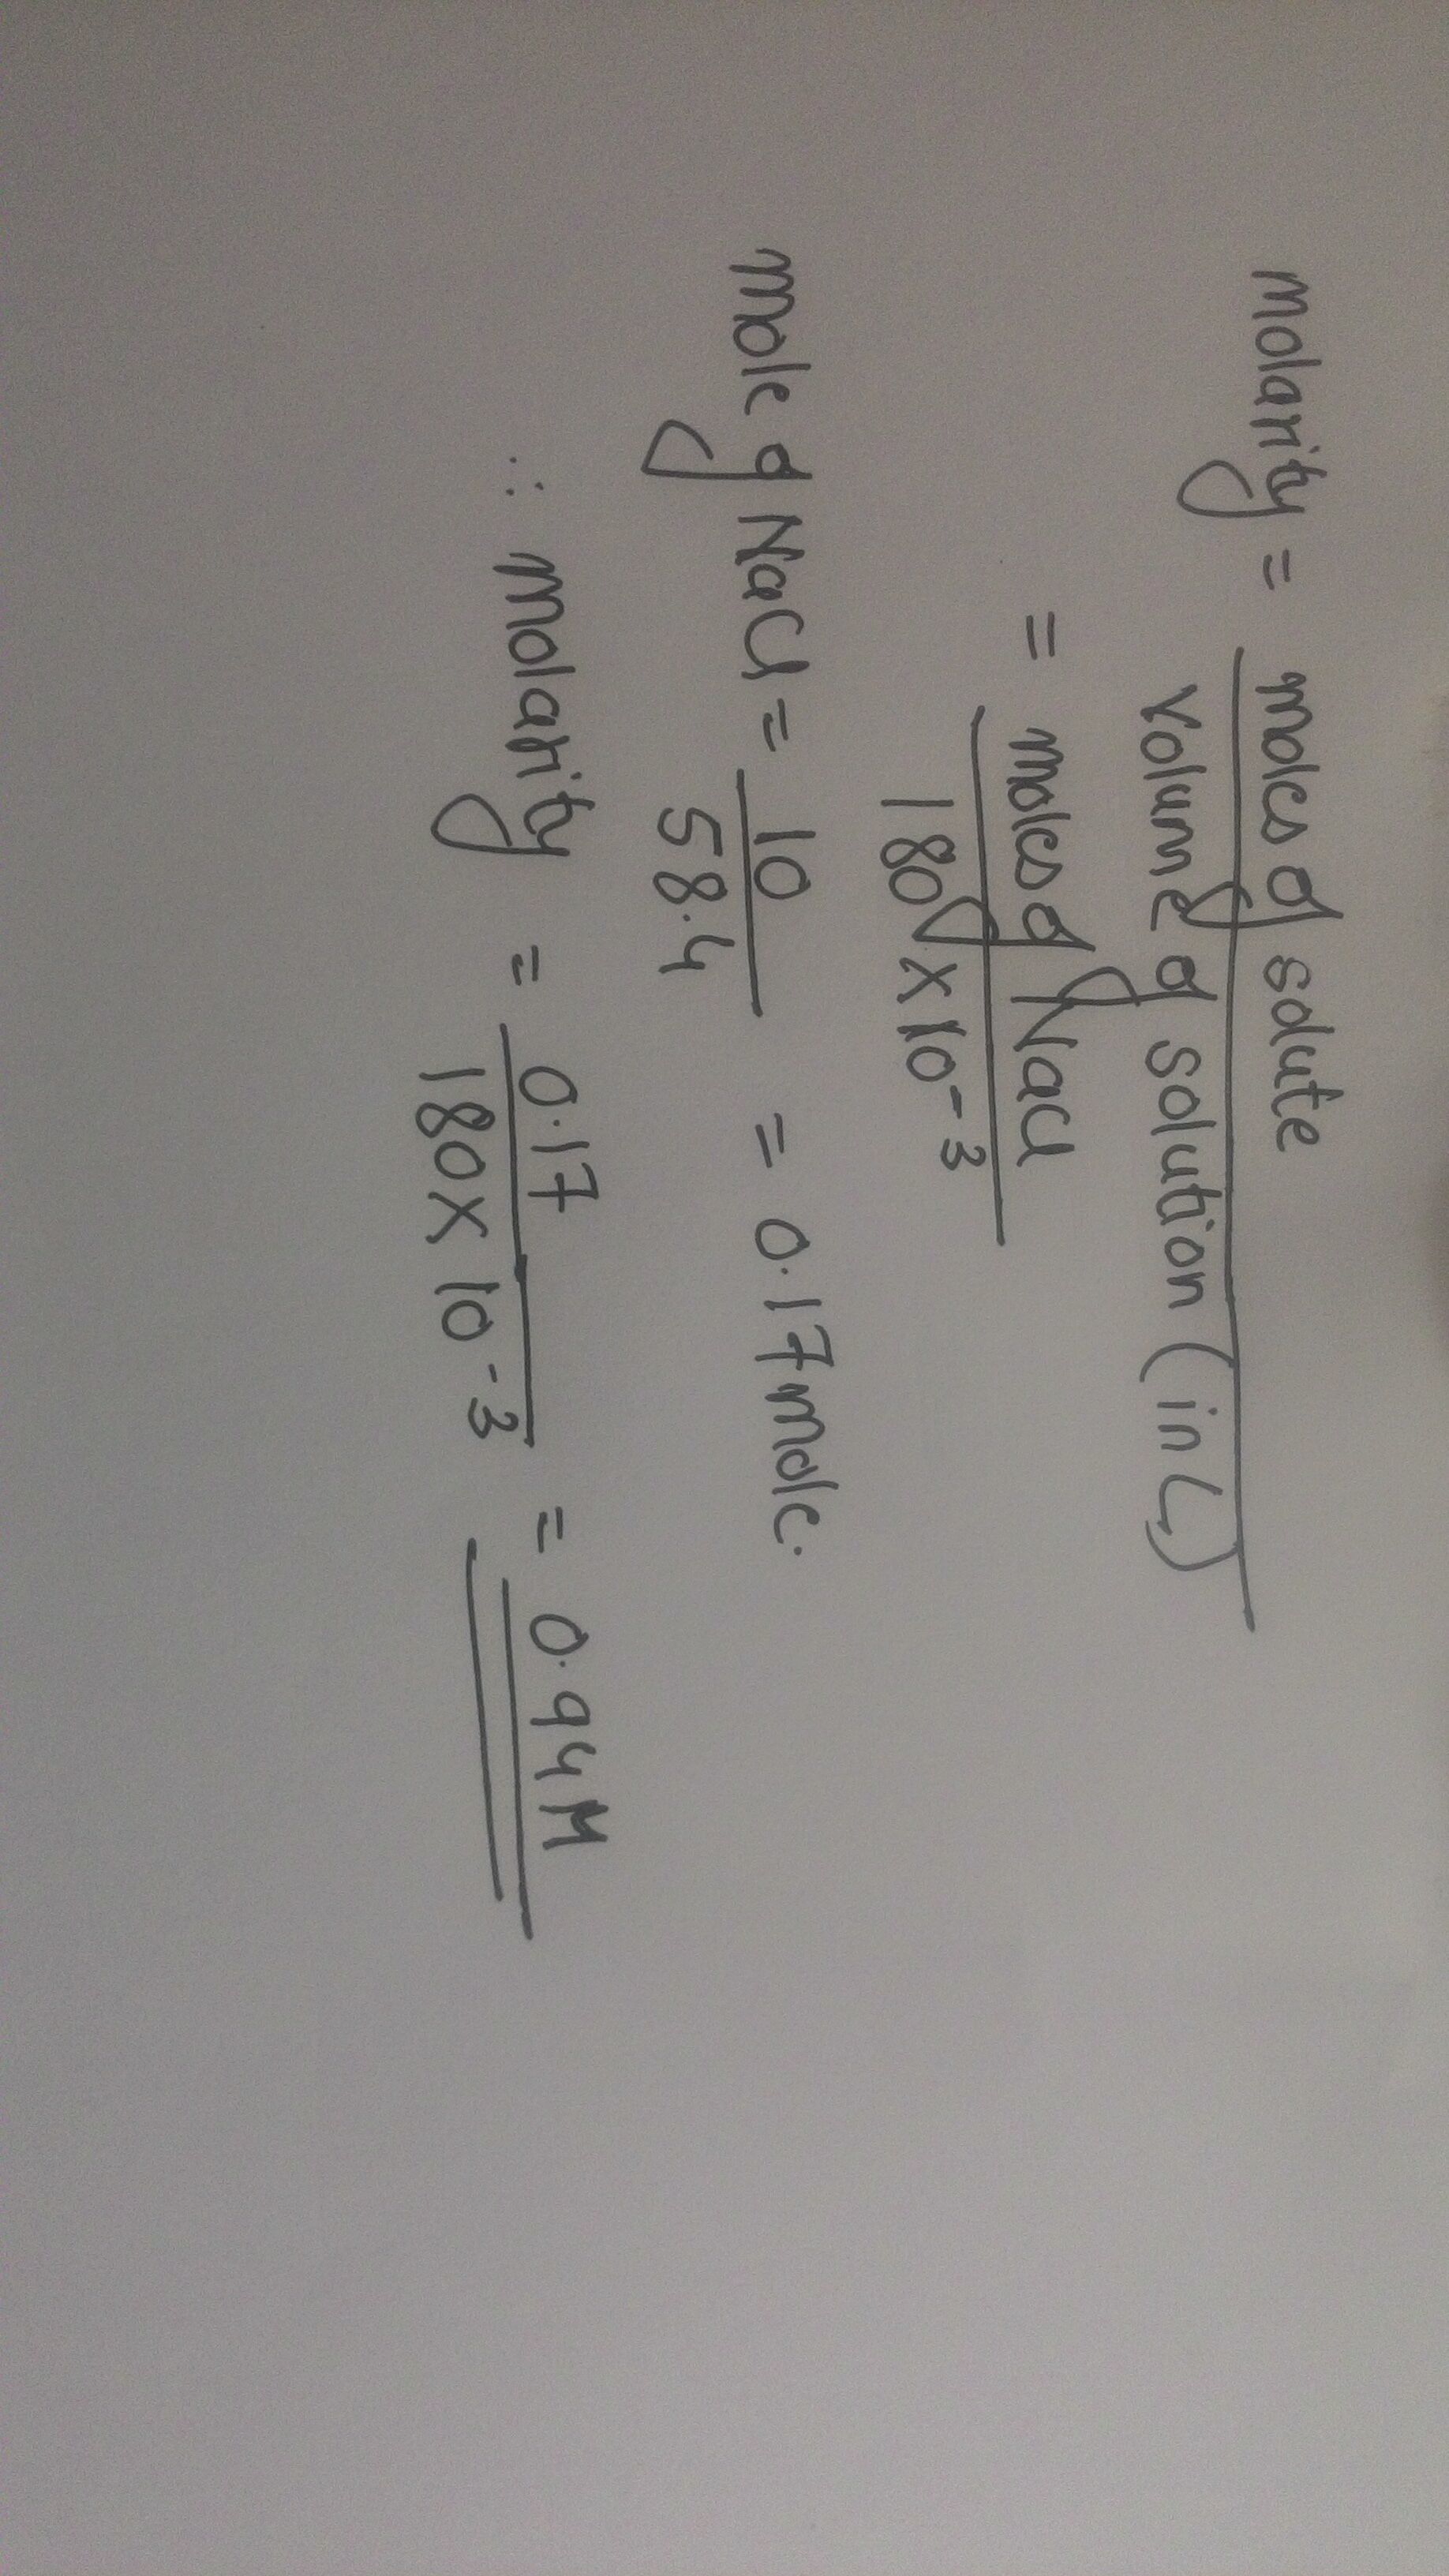 molarity = moles of solute
volume of solution (in L)
= moles of NaCl
180 x 10⁻³
mole of NaCl = 10 = 0.17 mole.
58.4
∴ molarity = 0.17 = 0.94 M
180 x 10⁻³